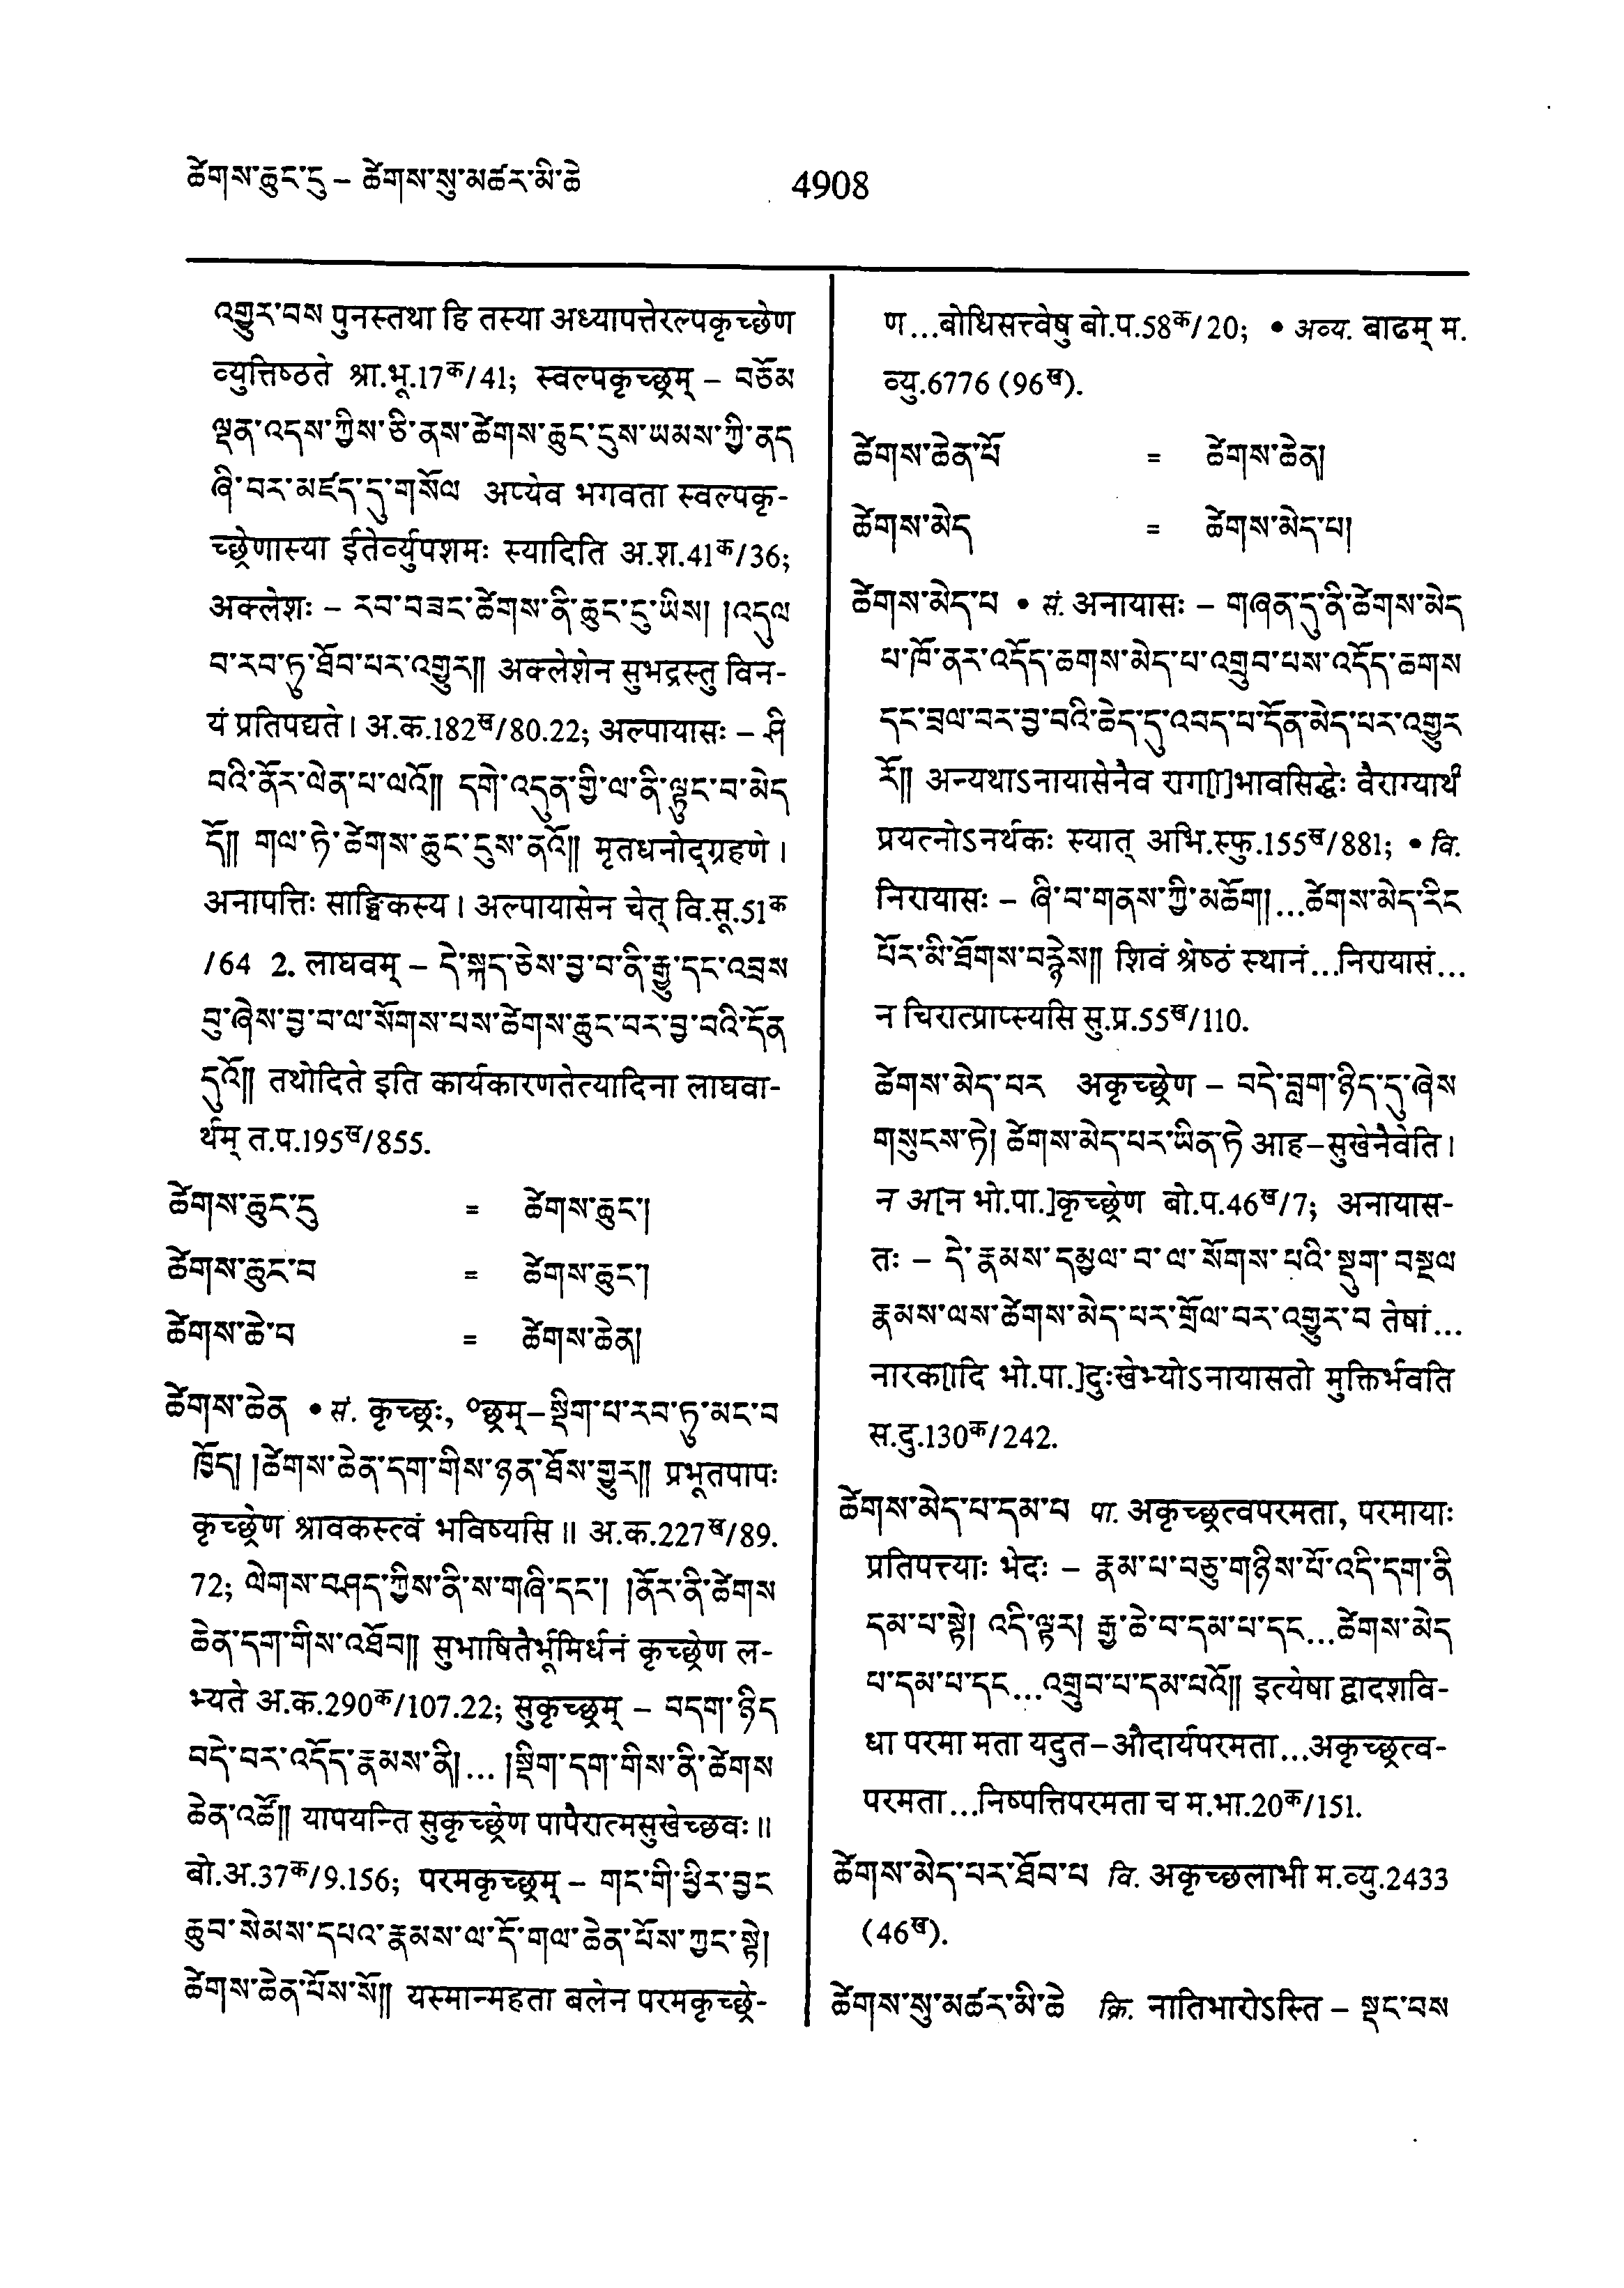 ཚེགས་ཆུང་དུ – ཚེགས་སུ་མཚར་མི་ཆེ
4908
འགྱུར་བས पुनस्तथा हि तस्या अध्यापत्तेरल्पकृच्छेण
व्युत्तिष्ठते श्रा.भू.17क/41; स्वल्पकृच्छ्रम् – བཅོམ
ལྡན་འདས་ཀྱིས་ཅི་ནས་ཚེགས་ཆུང་ངུས་ཡམས་ཀྱི་ནད
ཞི་བར་མཛད་དུ་གསོལ अप्येव भगवता स्वल्पकृ-
च्छ्रेणास्या ईतेर्व्युपशमः स्यादिति अ.श.41क/36;
अक्लेशः – རབ་བཟང་ཚེགས་ནི་ཆུང་ངུ་ཡིས། །འདུལ
བ་རབ་ཏུ་ཐོབ་པར་འགྱུར།། अक्लेशेन सुभद्रस्तु विन-
यं प्रतिपद्यते। अ.क.182ख/80.22; अल्पायासः – ཤི
བའི་ནོར་ལེན་པ་ལའོ།། དགེ་འདུན་གྱི་ལ་ནི་ལྟུང་བ་མེད
དོ།། གལ་ཏེ་ཚེགས་ཆུང་ངུས་ནའོ།། मृतधनोद्ग्रहणे।
अनापत्तिः साङ्घिकस्य। अल्पायासेन चेत् वि.सू.51क
/64 2. लाघवम् – དེ་སྐད་ཅེས་བྱ་བ་ནི་རྒྱུ་དང་འབྲས
བུ་ཞེས་བྱ་བ་ལ་སོགས་པས་ཚེགས་ཆུང་བར་བྱ་བའི་དོན
དུའོ།། तथोदिते इति कार्यकारणतेत्यादिना लाघवा-
र्थम् त.प.195ख/855.
ཚེགས་ཆུང་ངུ = ཚེགས་ཆུང་།
ཚེགས་ཆུང་བ = ཚེགས་ཆུང་།
ཚེགས་ཆེ་བ = ཚེགས་ཆེན།
ཚེགས་ཆེན • सं. कृच्छ्रः, ०छ्रम्–སྡིག་པ་རབ་ཏུ་མང་བ
ཁྱོད། །ཚེགས་ཆེན་དག་གིས་ཉན་ཐོས་གྱུར།། प्रभूतपापः
कृच्छ्रेण श्रावकस्त्वं भविष्यसि॥ अ.क.227ख/89.
72; ལེགས་བཤད་ཀྱིས་ནི་ས་གཞི་དང་། །ནོར་ནི་ཚེགས
ཆེན་དག་གིས་འཐོབ།། सुभाषितैर्भूमिर्धनं कृच्छ्रेण ल-
भ्यते अ.क.290क/107.22; सुकृच्छ्रम् – བདག་ཉིད
བདེ་བར་འདོད་རྣམས་ནི།... །སྡིག་དག་གིས་ནི་ཚེགས
ཆེན་འཚོ།། यापयन्ति सुकृच्छ्रेण पापैरात्मसुखेच्छवः॥
बो.अ.37क/9.156; परमकृच्छ्रम् – གང་གི་ཕྱིར་བྱང
ཆུབ་སེམས་དཔའ་རྣམས་ལ་དོ་གལ་ཆེན་པོས་ཀྱང་སྟེ།
ཚེགས་ཆེན་པོས་སོ།། यस्मान्महता बलेन परमकृच्छ्रे-
ण...बोधिसत्त्वेषु बो.प.58क/20; • अव्य. बाढम् म.
व्यु.6776 (96ख).
ཚེགས་ཆེན་པོ = ཚེགས་ཆེན།
ཚེགས་མེད = ཚེགས་མེད་པ།
ཚེགས་མེད་པ • सं. अनायासः – གཞན་དུ་ནི་ཚེགས་མེད
པ་ཁོ་ནར་འདོད་ཆགས་མེད་པ་འགྲུབ་པས་འདོད་ཆགས
དང་བྲལ་བར་བྱ་བའི་ཆེད་དུ་འབད་པ་དོན་མེད་པར་འགྱུར
རོ།། अन्यथाऽनायासेनैव राग[ा]भावसिद्धेः वैराग्यार्थं
प्रयत्नोऽनर्थकः स्यात् अभि.स्फु.155ख/881; • वि.
निरायासः – ཞི་བ་གནས་ཀྱི་མཆོག།...ཚེགས་མེད་རིང
པོར་མི་ཐོགས་བརྙེས།། शिवं श्रेष्ठं स्थानं...निरायासं...
न चिरात्प्राप्स्यसि सु.प्र.55ख/110.
ཚེགས་མེད་པར अकृच्छ्रेण – བདེ་བླག་ཉིད་དུ་ཞེས
གསུངས་ཏེ། ཚེགས་མེད་པར་ཡིན་ཏེ आह–सुखेनैवेति।
न अ[न भो.पा.]कृच्छ्रेण बो.प.46ख/7; अनायास-
तः – དེ་རྣམས་དམྱལ་བ་ལ་སོགས་པའི་སྡུག་བསྔལ
རྣམས་ལས་ཚེགས་མེད་པར་གྲོལ་བར་འགྱུར་བ तेषां...
नारक[ादि भो.पा.]दुःखेभ्योऽनायासतो मुक्तिर्भवति
स.दु.130क/242.
ཚེགས་མེད་པ་དམ་པ पा. अकृच्छ्रत्वपरमता, परमायाः
प्रतिपत्त्याः भेदः – རྣམ་པ་བཅུ་གཉིས་པོ་འདི་དག་ནི
དམ་པ་སྟེ། འདི་ལྟར། རྒྱ་ཆེ་བ་དམ་པ་དང...ཚེགས་མེད
པ་དམ་པ་དང...འགྲུབ་པ་དམ་པའོ།། इत्येषा द्वादशवि-
धा परमा मता यदुत–औदार्यपरमता...अकृच्छ्रत्व-
परमता...निष्पत्तिपरमता च म.भा.20क/151.
ཚེགས་མེད་པར་ཐོབ་པ वि. अकृच्छलाभी म.व्यु.2433
(46ख).
ཚེགས་སུ་མཚར་མི་ཆེ क्रि. नातिभारोऽस्ति – སྡང་བས